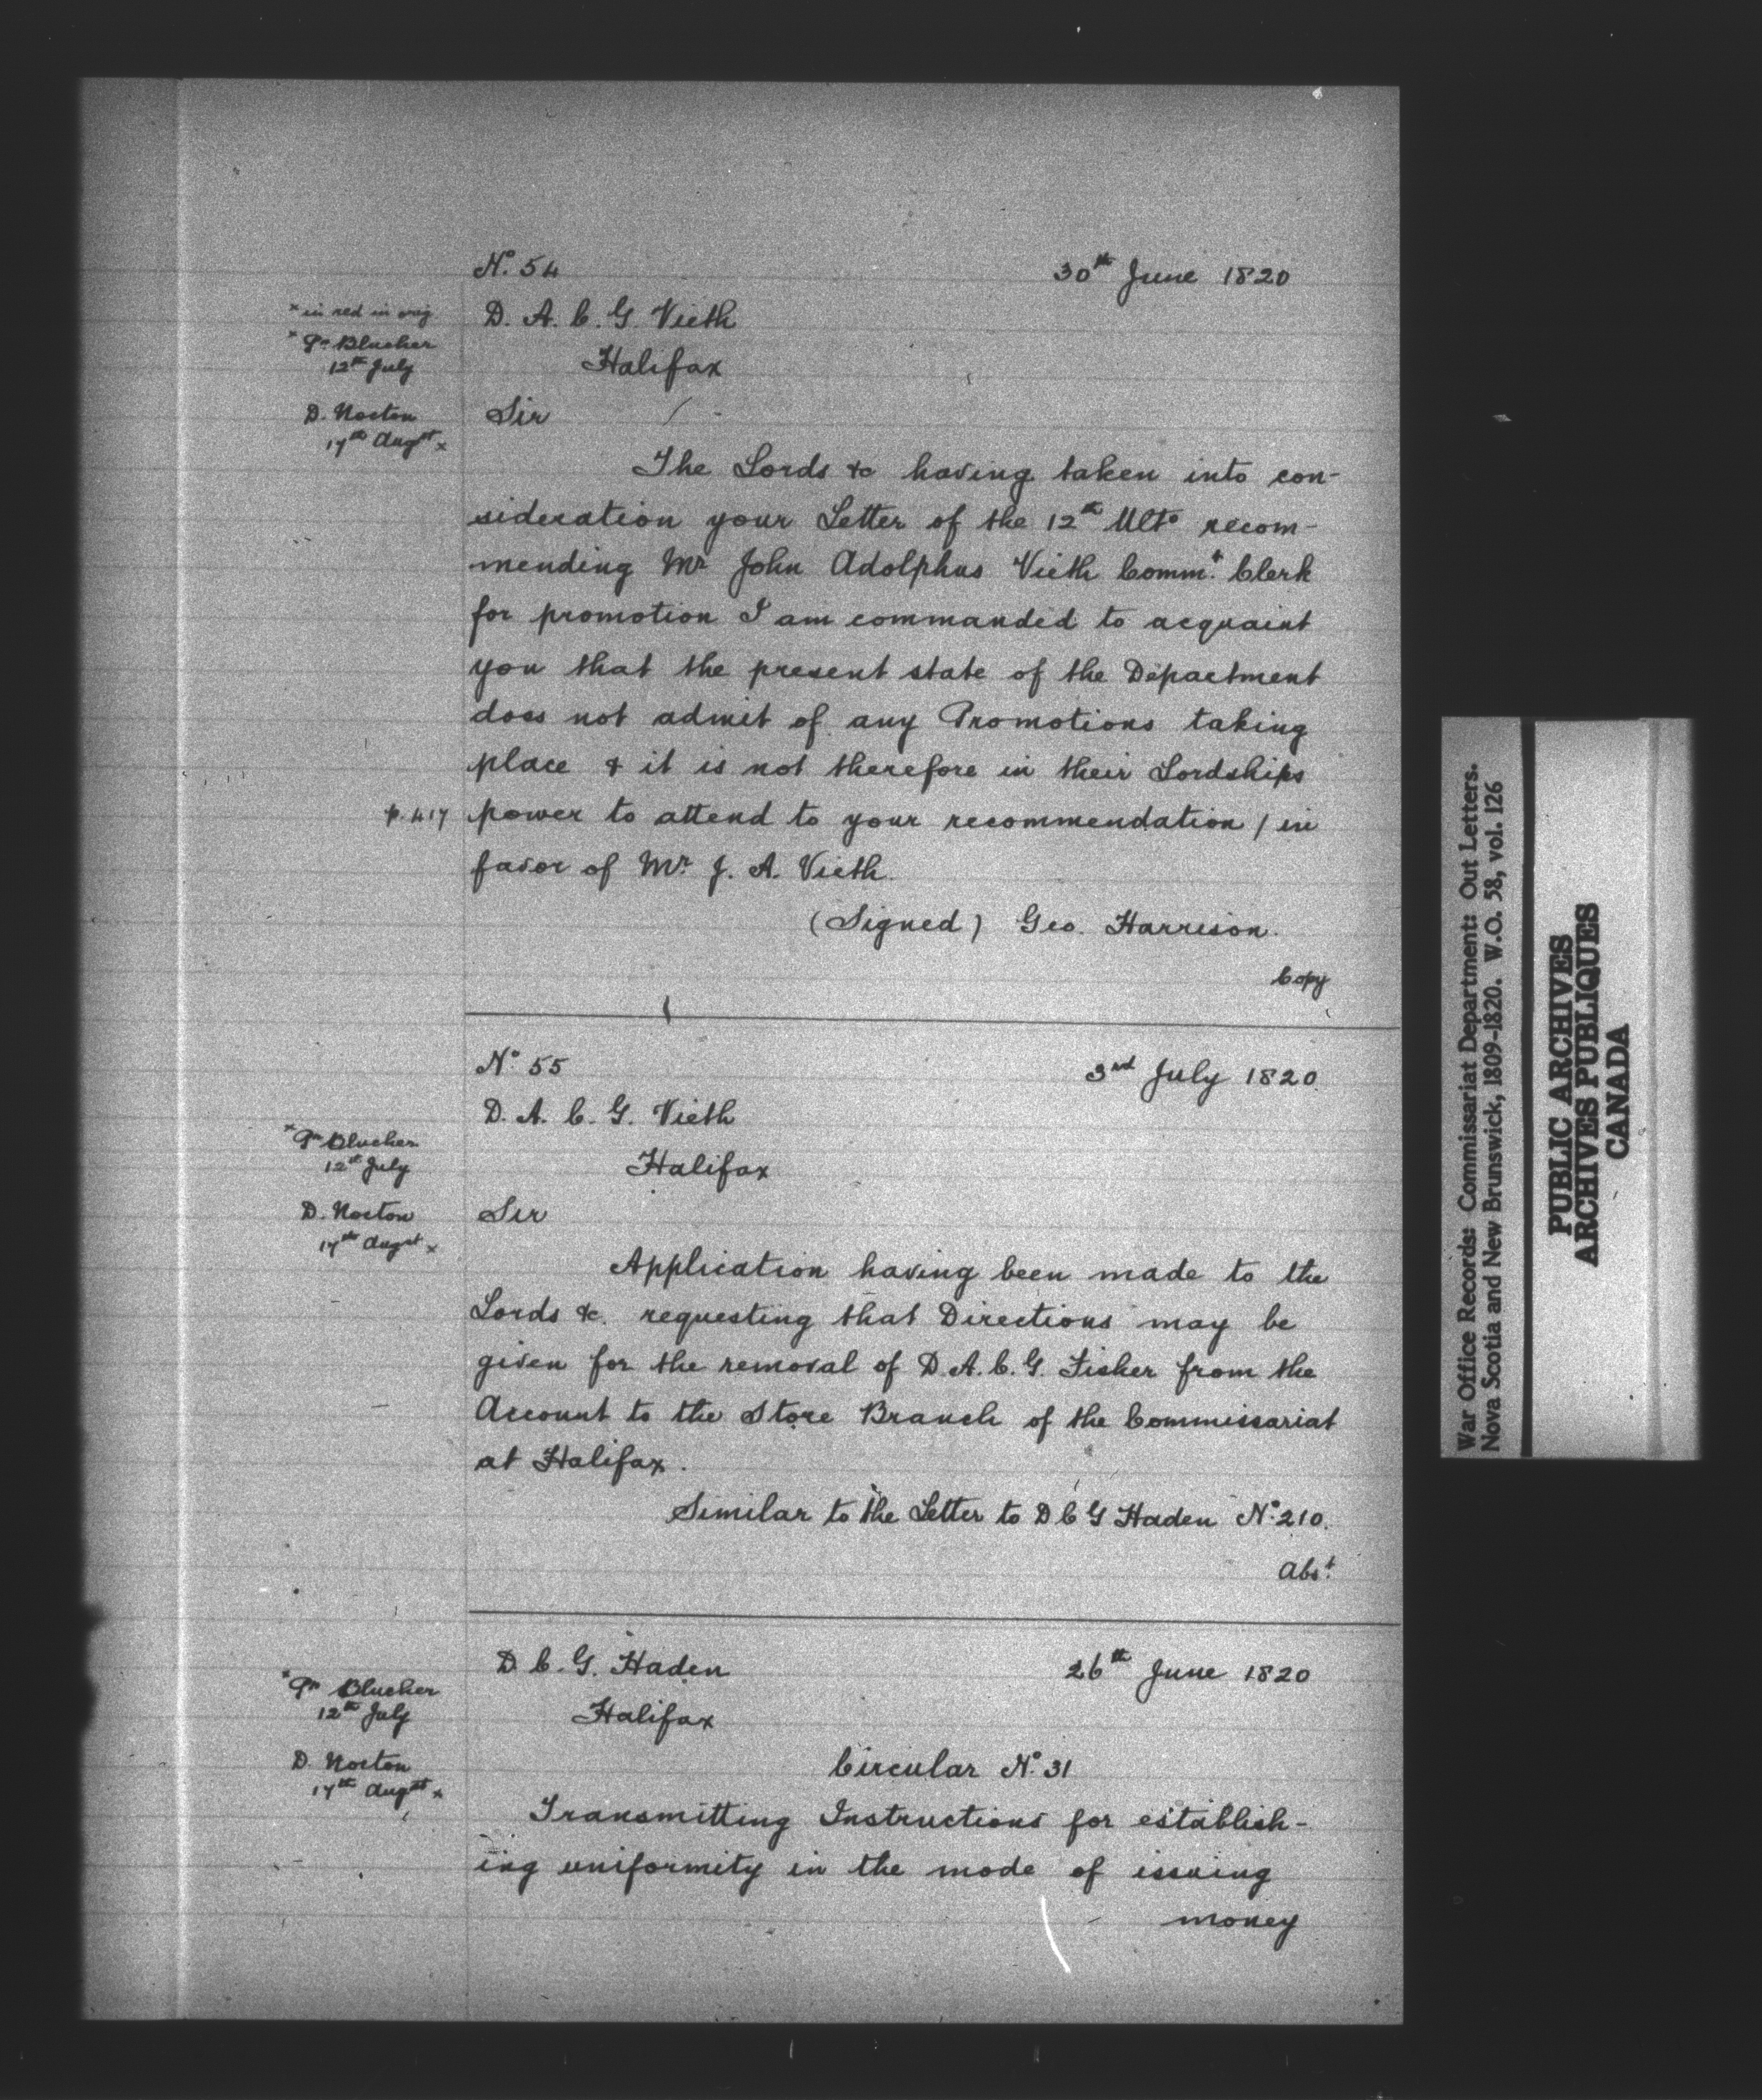 No. 54 30th June 1820
* in red in orig
D. A. C. G. Vieth
* Pr Blucher
12th July
Halifax
D. Norton
17th Augst x
Sir
The Lords &c having taken into con-
sideration your Letter of the 12th Ulto recom-
mending Mr John Adolphus Vieth Commt. Clerk
for promotion I am commanded to acquaint
you that the present state of the Department
does not admit of any Promotions taking
place & it is not therefore in their Lordships
p. 417 power to attend to your recommendation / in
favor of Mr. J. A. Vieth.
(Signed) Geo. Harrison.
Copy
No 55 3rd July 1820
D. A. C. G. Vieth
* Pr Blucher
12th July
Halifax
D. Norton
17th Augst x
Sir
Application having been made to the
Lords &c. requesting that Directions may be
given for the removal of D. A. C. G. Fisher from the
Account to the Store Branch of the Commissariat
at Halifax.
Similar to the Letter to D C G Haden No. 210.
Abst.
D. C. G. Haden 26th June 1820
* Pr Blucher
12th July
Halifax
D. Norton
17th Augst x
Circular No. 31
Transmitting Instructions for establish-
ing uniformity in the mode of issuing
money
War Office Records: Commissariat Department: Out Letters.
Nova Scotia and New Brunswick, 1809-1820. W.O. 58, vol. 126
PUBLIC ARCHIVES
ARCHIVES PUBLIQUES
CANADA